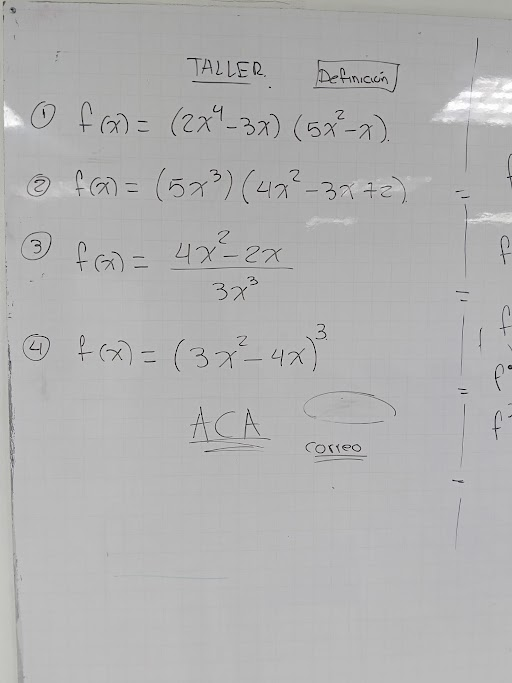 TALLER. Definición
① f(x) = (2x⁴-3x) (5x²-x).
② f(x) = (5x³) (4x²-3x+2)
③ f(x) = 4x²-2x / 3x³
④ f(x) = (3x²-4x)³
ACA
correo